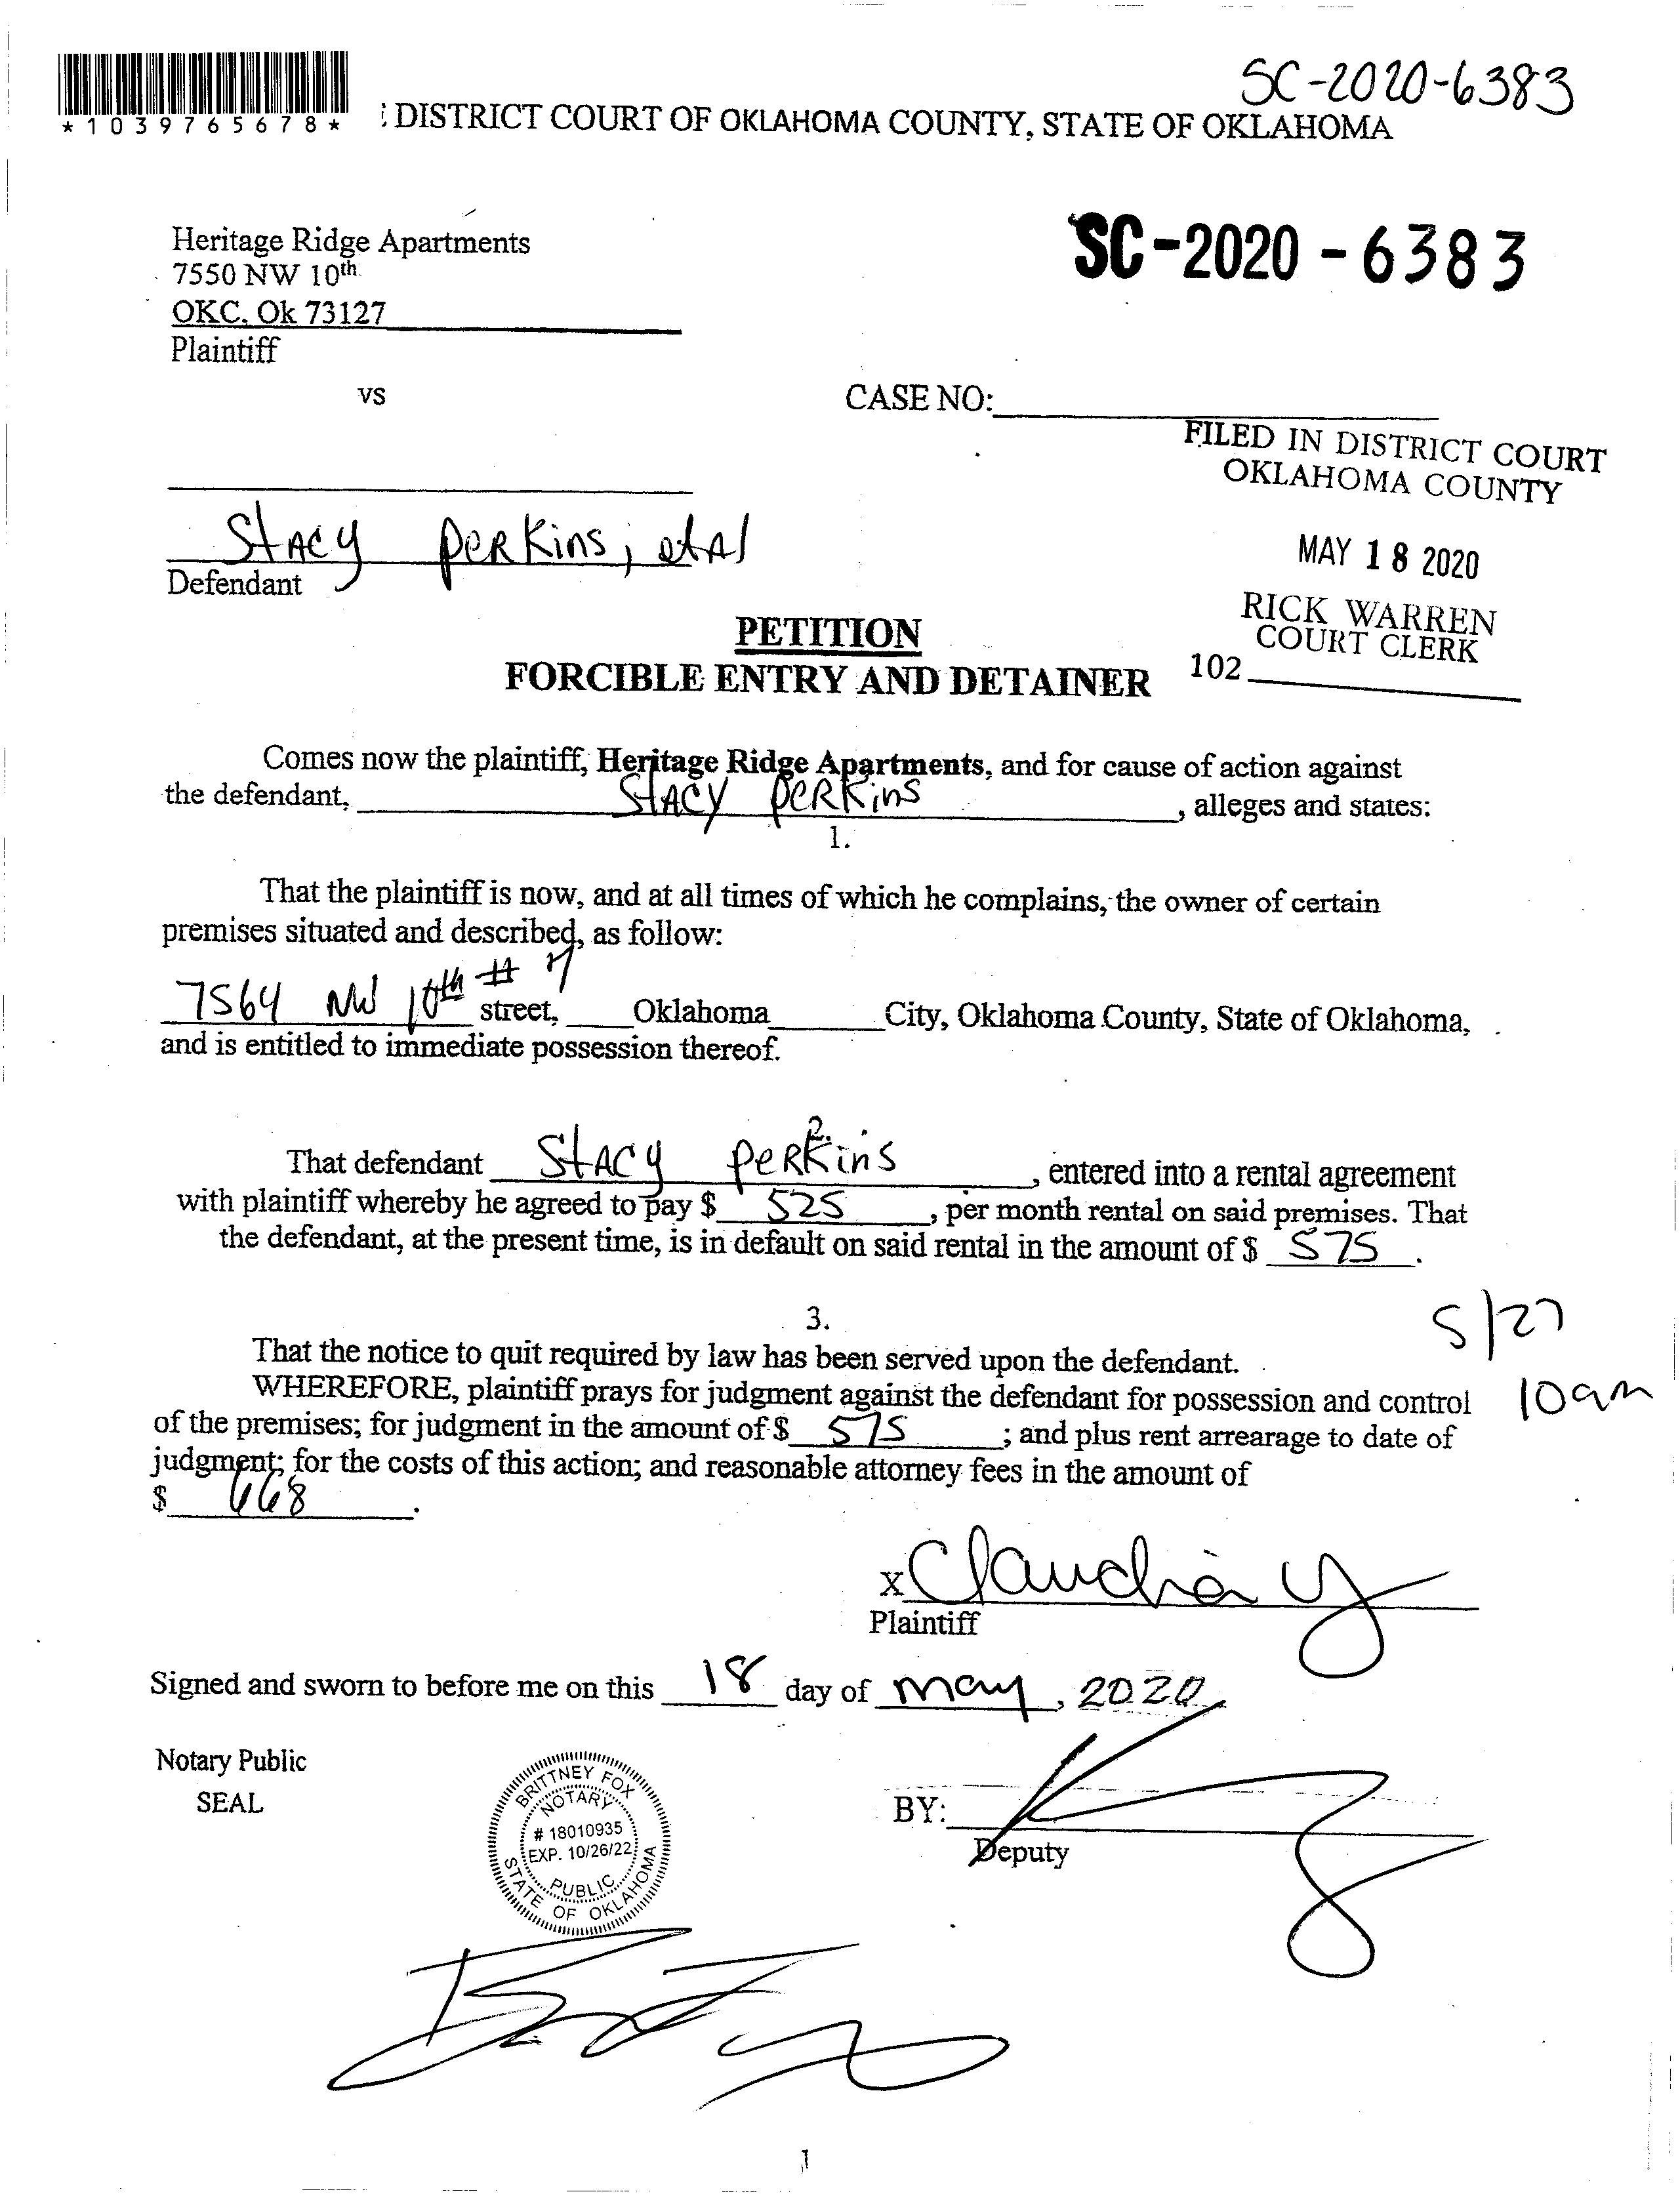 SC-2020-6383
*1039765678*
DISTRICT COURT OF OKLAHOMA COUNTY, STATE OF OKLAHOMA
Heritage Ridge Apartments
7550 NW 10th
OKC, Ok 73127
Plaintiff
SC-2020-6383
vs
CASE NO:
FILED IN DISTRICT COURT
OKLAHOMA COUNTY
MAY 18 2020
RICK WARREN
COURT CLERK
102
Stacy Perkins, et Al
Defendant
PETITION
FORCIBLE ENTRY AND DETAINER
Comes now the plaintiff, Heritage Ridge Apartments, and for cause of action against
the defendant, Stacy Perkins, alleges and states:
1.
That the plaintiff is now, and at all times of which he complains, the owner of certain
premises situated and described, as follow:
7564 NW 10th # 7 street, Oklahoma City, Oklahoma County, State of Oklahoma,
and is entitled to immediate possession thereof.
2.
That defendant Stacy Perkins, entered into a rental agreement
with plaintiff whereby he agreed to pay $ 525, per month rental on said premises. That
the defendant, at the present time, is in default on said rental in the amount of $ 575.
3.
That the notice to quit required by law has been served upon the defendant.
WHEREFORE, plaintiff prays for judgment against the defendant for possession and control
of the premises; for judgment in the amount of $ 575; and plus rent arrearage to date of
judgment; for the costs of this action; and reasonable attorney fees in the amount of
$ 668.
5/27
10am
X Claudia Y
Plaintiff
Signed and sworn to before me on this 18 day of May, 2020
Notary Public
SEAL
BRITTNEY FOX
NOTARY
# 18010935
EXP. 10/26/22
PUBLIC
STATE OF OKLAHOMA
BY:
Deputy
1